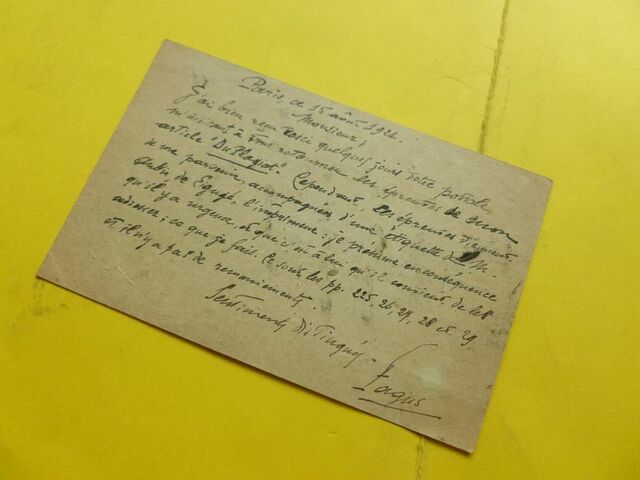 Paris, ce 15 août 1921.
Monsieur,
J'ai bien reçu voici quelques jours votre postale
m'invitant à vous retourner les épreuves de mon
article "Du Plagiat". Cependant, les épreuves viennent
de me parvenir accompagnées d'une étiquette de M.
Aubin de Ligugé, l'imprimeur : je présume en conséquence
qu'il y a urgence, et que c'est à lui qu'il convient de les
adresser ; ce que je fais. Ce sont les pp. 225, 26, 27, 28 et 29.
et, il n'y a pas de remaniements.
Sentiments distingués.
Fagus